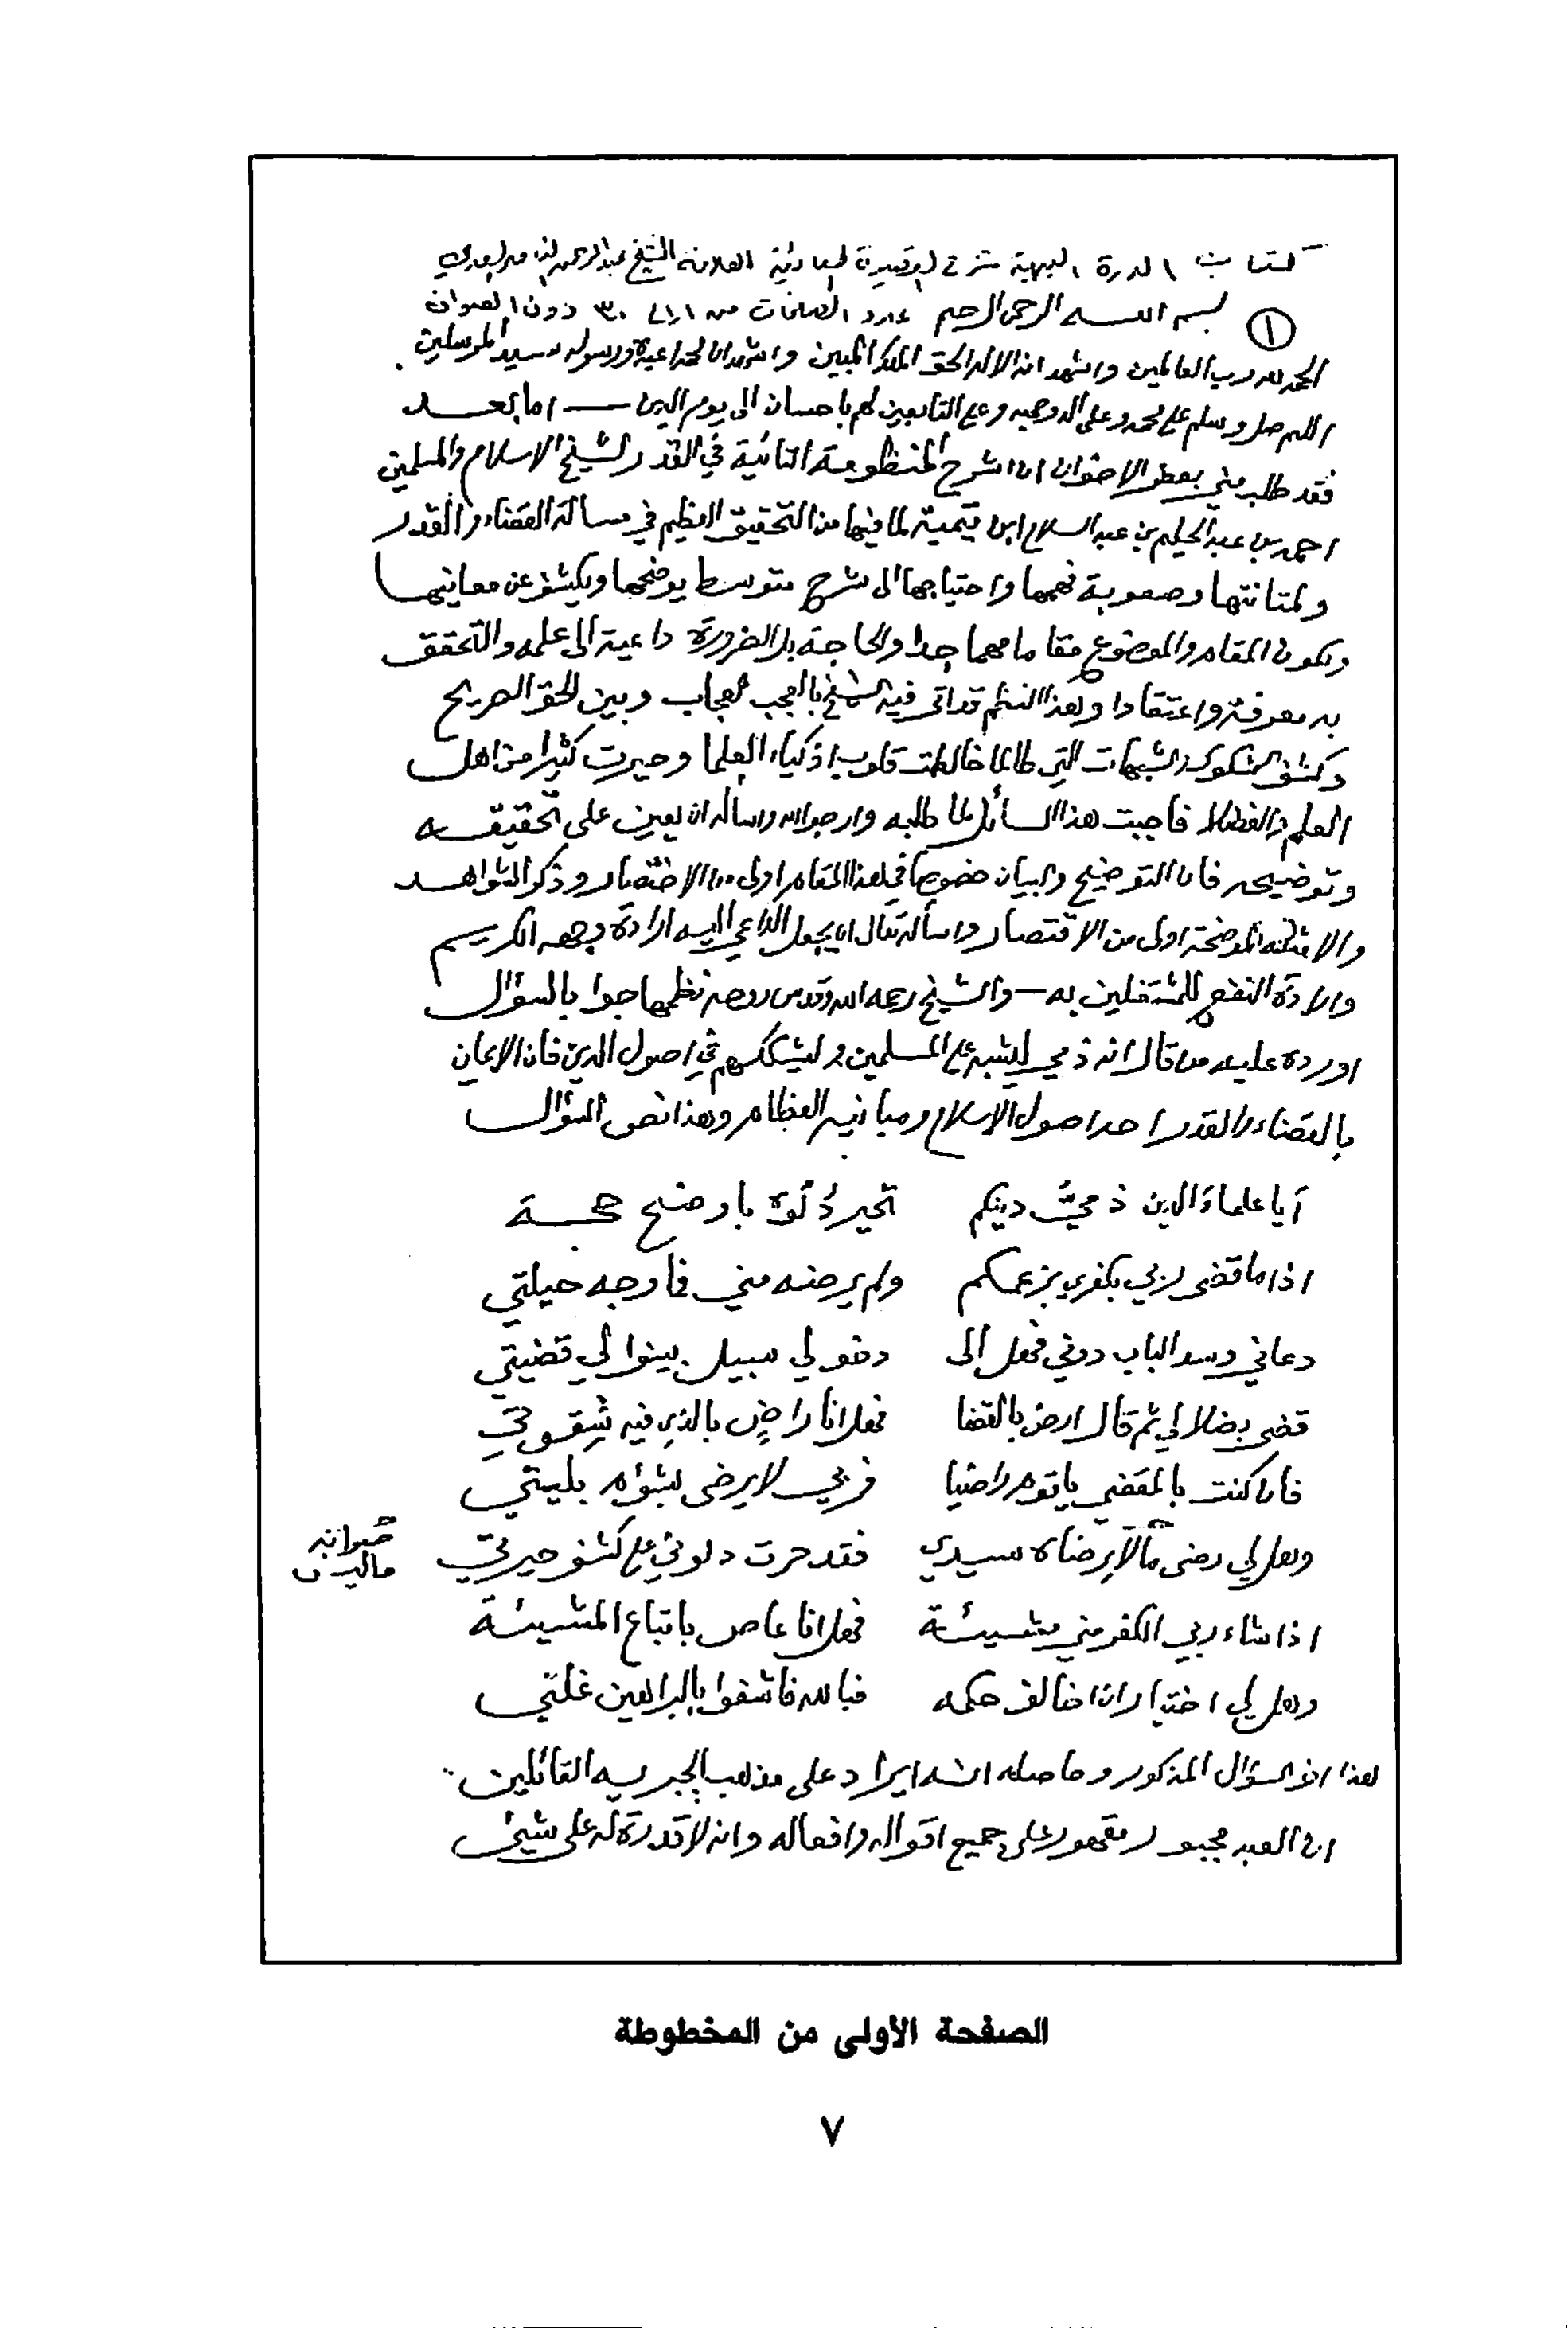 كتاب الدرة البهية شرح القصيدة التائية العلامة الشيخ عبدالرحمن الناصر السعدي
① بسم الله الرحمن الرحيم عدد الصفحات من ١ الى ٣٠ دون العنوان
الحمد لله رب العالمين واشهد ان لا اله الا الله الحق الملك المبين واشهد ان محمدا عبده ورسوله سيد المرسلين .
اللهم صل وسلم على محمد وعلى اله وصحبه وعلى التابعين لهم باحسان الى يوم الدين — اما بعد
فقد طلب مني بعض الاخوان ان اشرح المنظومة التائية في القدر لشيخ الاسلام والمسلمين
احمد بن عبد الحليم بن عبد السلام ابن تيمية لما فيها من التحقيق العظيم في مسالة القضاء والقدر
ولمتانتها وصعوبة فهمها واحتياجها الى شرح متوسط يوضحها ويكشف عن معانيها
ويكون المقام والموضوع مقاما مهما جدا والحاجة بل الضرورة داعية الى علمه والتحقق
به معرفة واعتقادا وهذا النظم قد اتى فيه الشيخ بالعجب العجاب وبين الحق الصريح
وكشف الشكوك والشبهات التي طالما خالطت قلوب اذكياء العلما وحيرت كثيرا من اهل
العلم والفضلا فاجبت هذا السائل لما طلبه وارجو الله واساله ان يعين على تحقيقه
وتوضيحه فان التوضيح والبيان خصوصا في هذا المقام اولى من الاختصار وذكر الشواهد
والامثله الموضحة اولى من الاقتصار واساله تعالى ان يجعل الداعي اليه ارادة وجهه الكريم
وارادة النفع للمشتغلين به — والشيخ رحمه الله وقدس روحه نظمها جوابا لسؤال
اورده عليه من قال انه ذمي ليشبه على المسلمين وليشككهم في اصول الدين فان الايمان
بالقضاء والقدر احد اصول الاسلام ومبانيه العظام وهذا نص السؤال
أيا علماء الدين ذمي دينكم تحير دلوه باوضح حجة
اذا ما قضى ربي بكفري بزعمكم ولم يرضه مني فما وجه حيلتي
دعاني وسد الباب دوني فهل الى دخولي سبيل بينوا لي قضيتي
قضى بضلالي ثم قال ارض بالقضا فهل انا راضٍ بالذي فيه شقوتي
فان كنت بالمقضي يا قوم راضيا فربي لا يرضى بشؤم بليتي
وهل لي رضى ما لا يرضاه سيدي فقد حرت دلوني على كشف حيرتي
صوابه
ما ليس
اذا شاء ربي الكفر مني مشيئة فهل انا عاص باتباع المشيئة
وهل لي اختيار ان اخالف حكمه فبالله فاشفوا بالبراهين غلتي
هذا اخر السؤال المذكور وحاصله انه ايراد على مذهب الجبريه القائلين
ان العبد مجبور مقهور على جميع اقواله وافعاله وانه لا قدرة له على شيئ
الصفحة الأولى من المخطوطة
٧